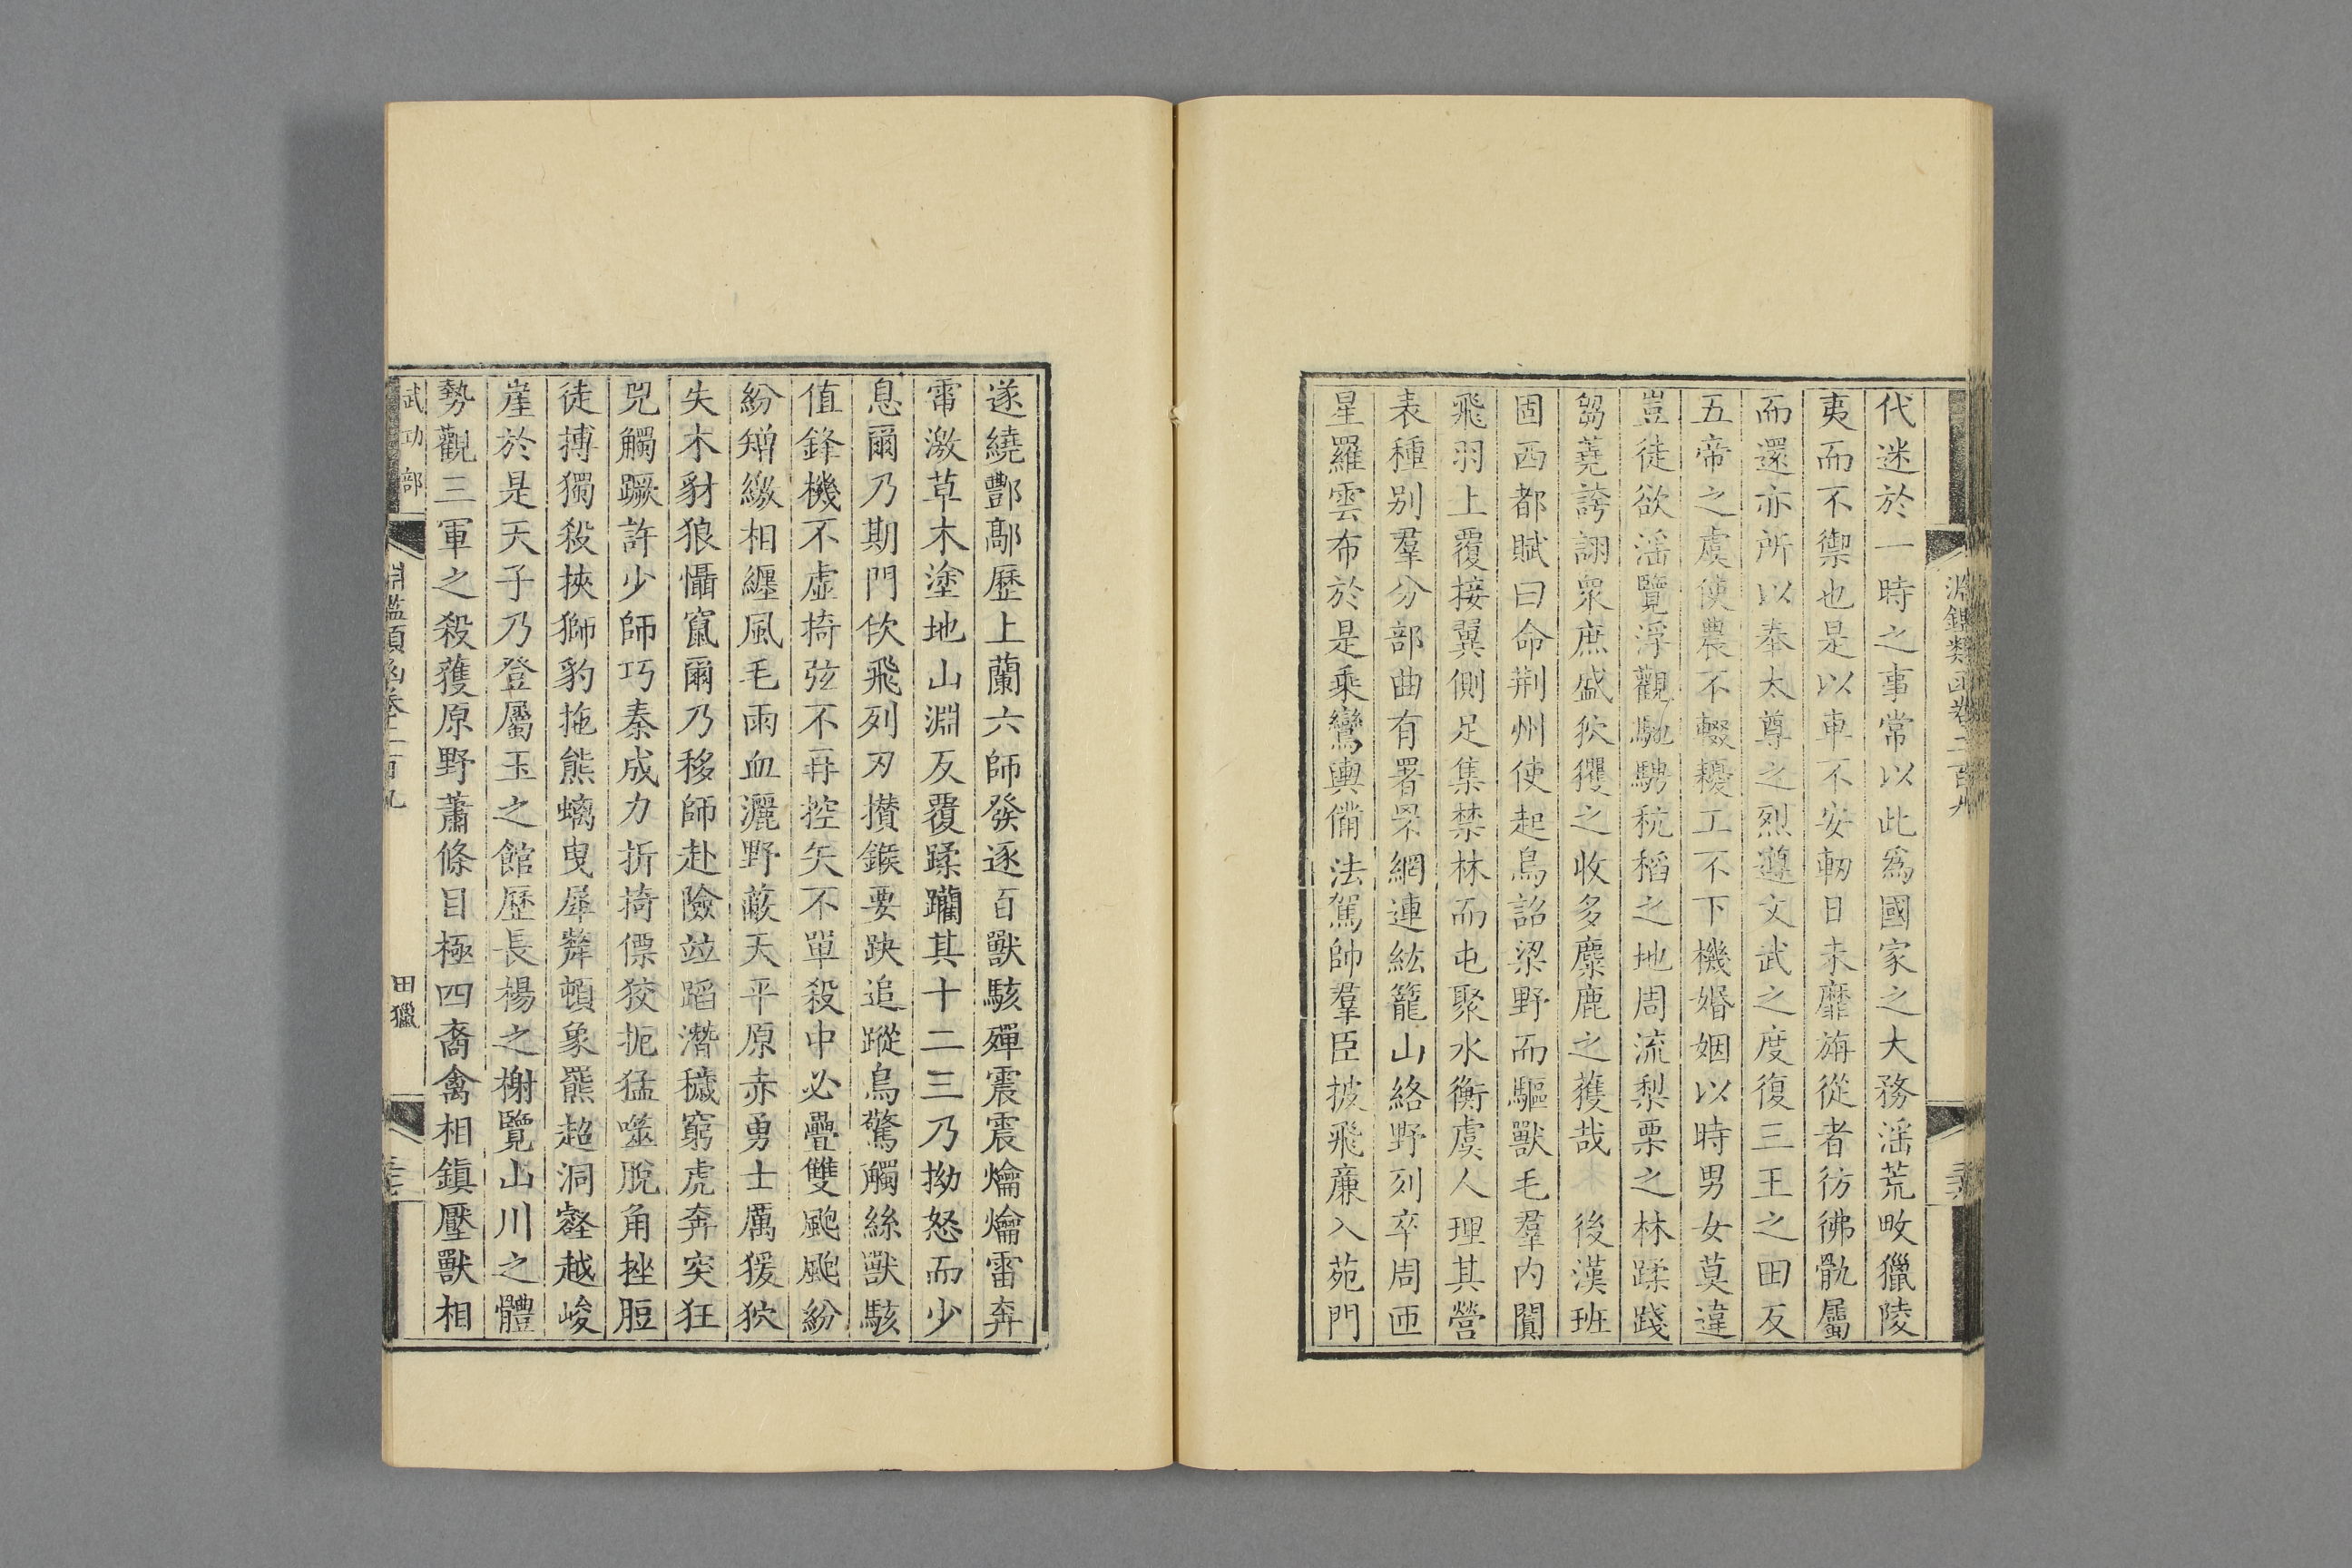 淵鑑類函卷二百九
代迷於一時之事常以此爲國家之大務淫荒畋獵陵
夷而不禦也是以車不安軔日未靡旃從者彷彿骫屬
而還亦所以奉太尊之烈遵文武之度復三王之田反
五帝之虞使農不輟耰工不下機婚姻以時男女莫違
豈徒欲淫覽浮觀馳騁秔稻之地周流梨栗之林蹂踐
芻蕘誇詡衆庶盛狖玃之收多麋鹿之獲哉 後漢班
固西都賦曰命荆州使起鳥詔梁野而驅獸毛羣内闐
飛羽上覆接翼側足集禁林而屯聚水衡虞人理其營
表種别羣分部曲有署罘網連紘籠山絡野列卒周匝
星羅雲布於是乘鸞輿備法駕帥羣臣披飛廉入苑門
遂繞酆鄗歷上蘭六師發逐百獸駭殫震震爚爚雷奔
電激草木塗地山淵反覆蹂躪其十二三乃拗怒而少
息爾乃期門佽飛列刃攢鍭要趹追蹤鳥驚觸絲獸駭
值鋒機不虚掎弦不再控矢不單殺中必疊雙颮颮紛
紛矰繳相纏風毛雨血灑野蔽天平原赤勇士厲猨狖
失木豺狼懾竄爾乃移師赴險竝蹈潛穢窮虎奔突狂
兕觸蹶許少師巧秦成力折掎僄狡扼猛噬脫角挫脰
徒搏獨殺挾獅豹拖熊螭曳犀犛頓象羆超洞壑越峻
崖於是天子乃登屬玉之館歷長楊之榭覽山川之體
勢觀三軍之殺獲原野蕭條目極四裔禽相鎮壓獸相
武功部 淵鑑類函卷二百九 田獵